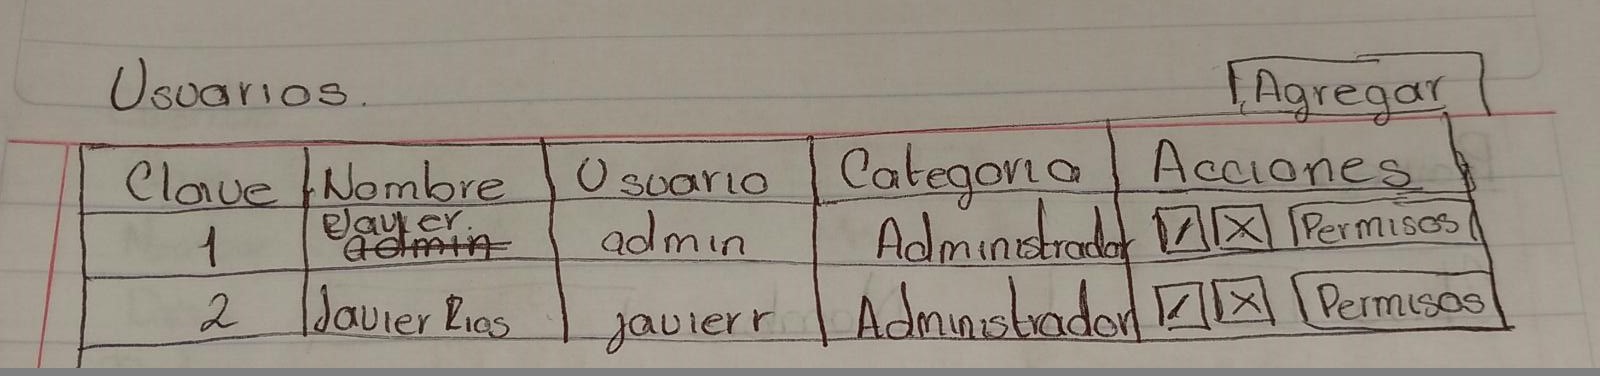 Usuarios.
Agregar
Clave Nombre Usuario Categoria Acciones
1 Javier. admin Administrador Permisos
2 Javier Rios javierr Administrador Permisos